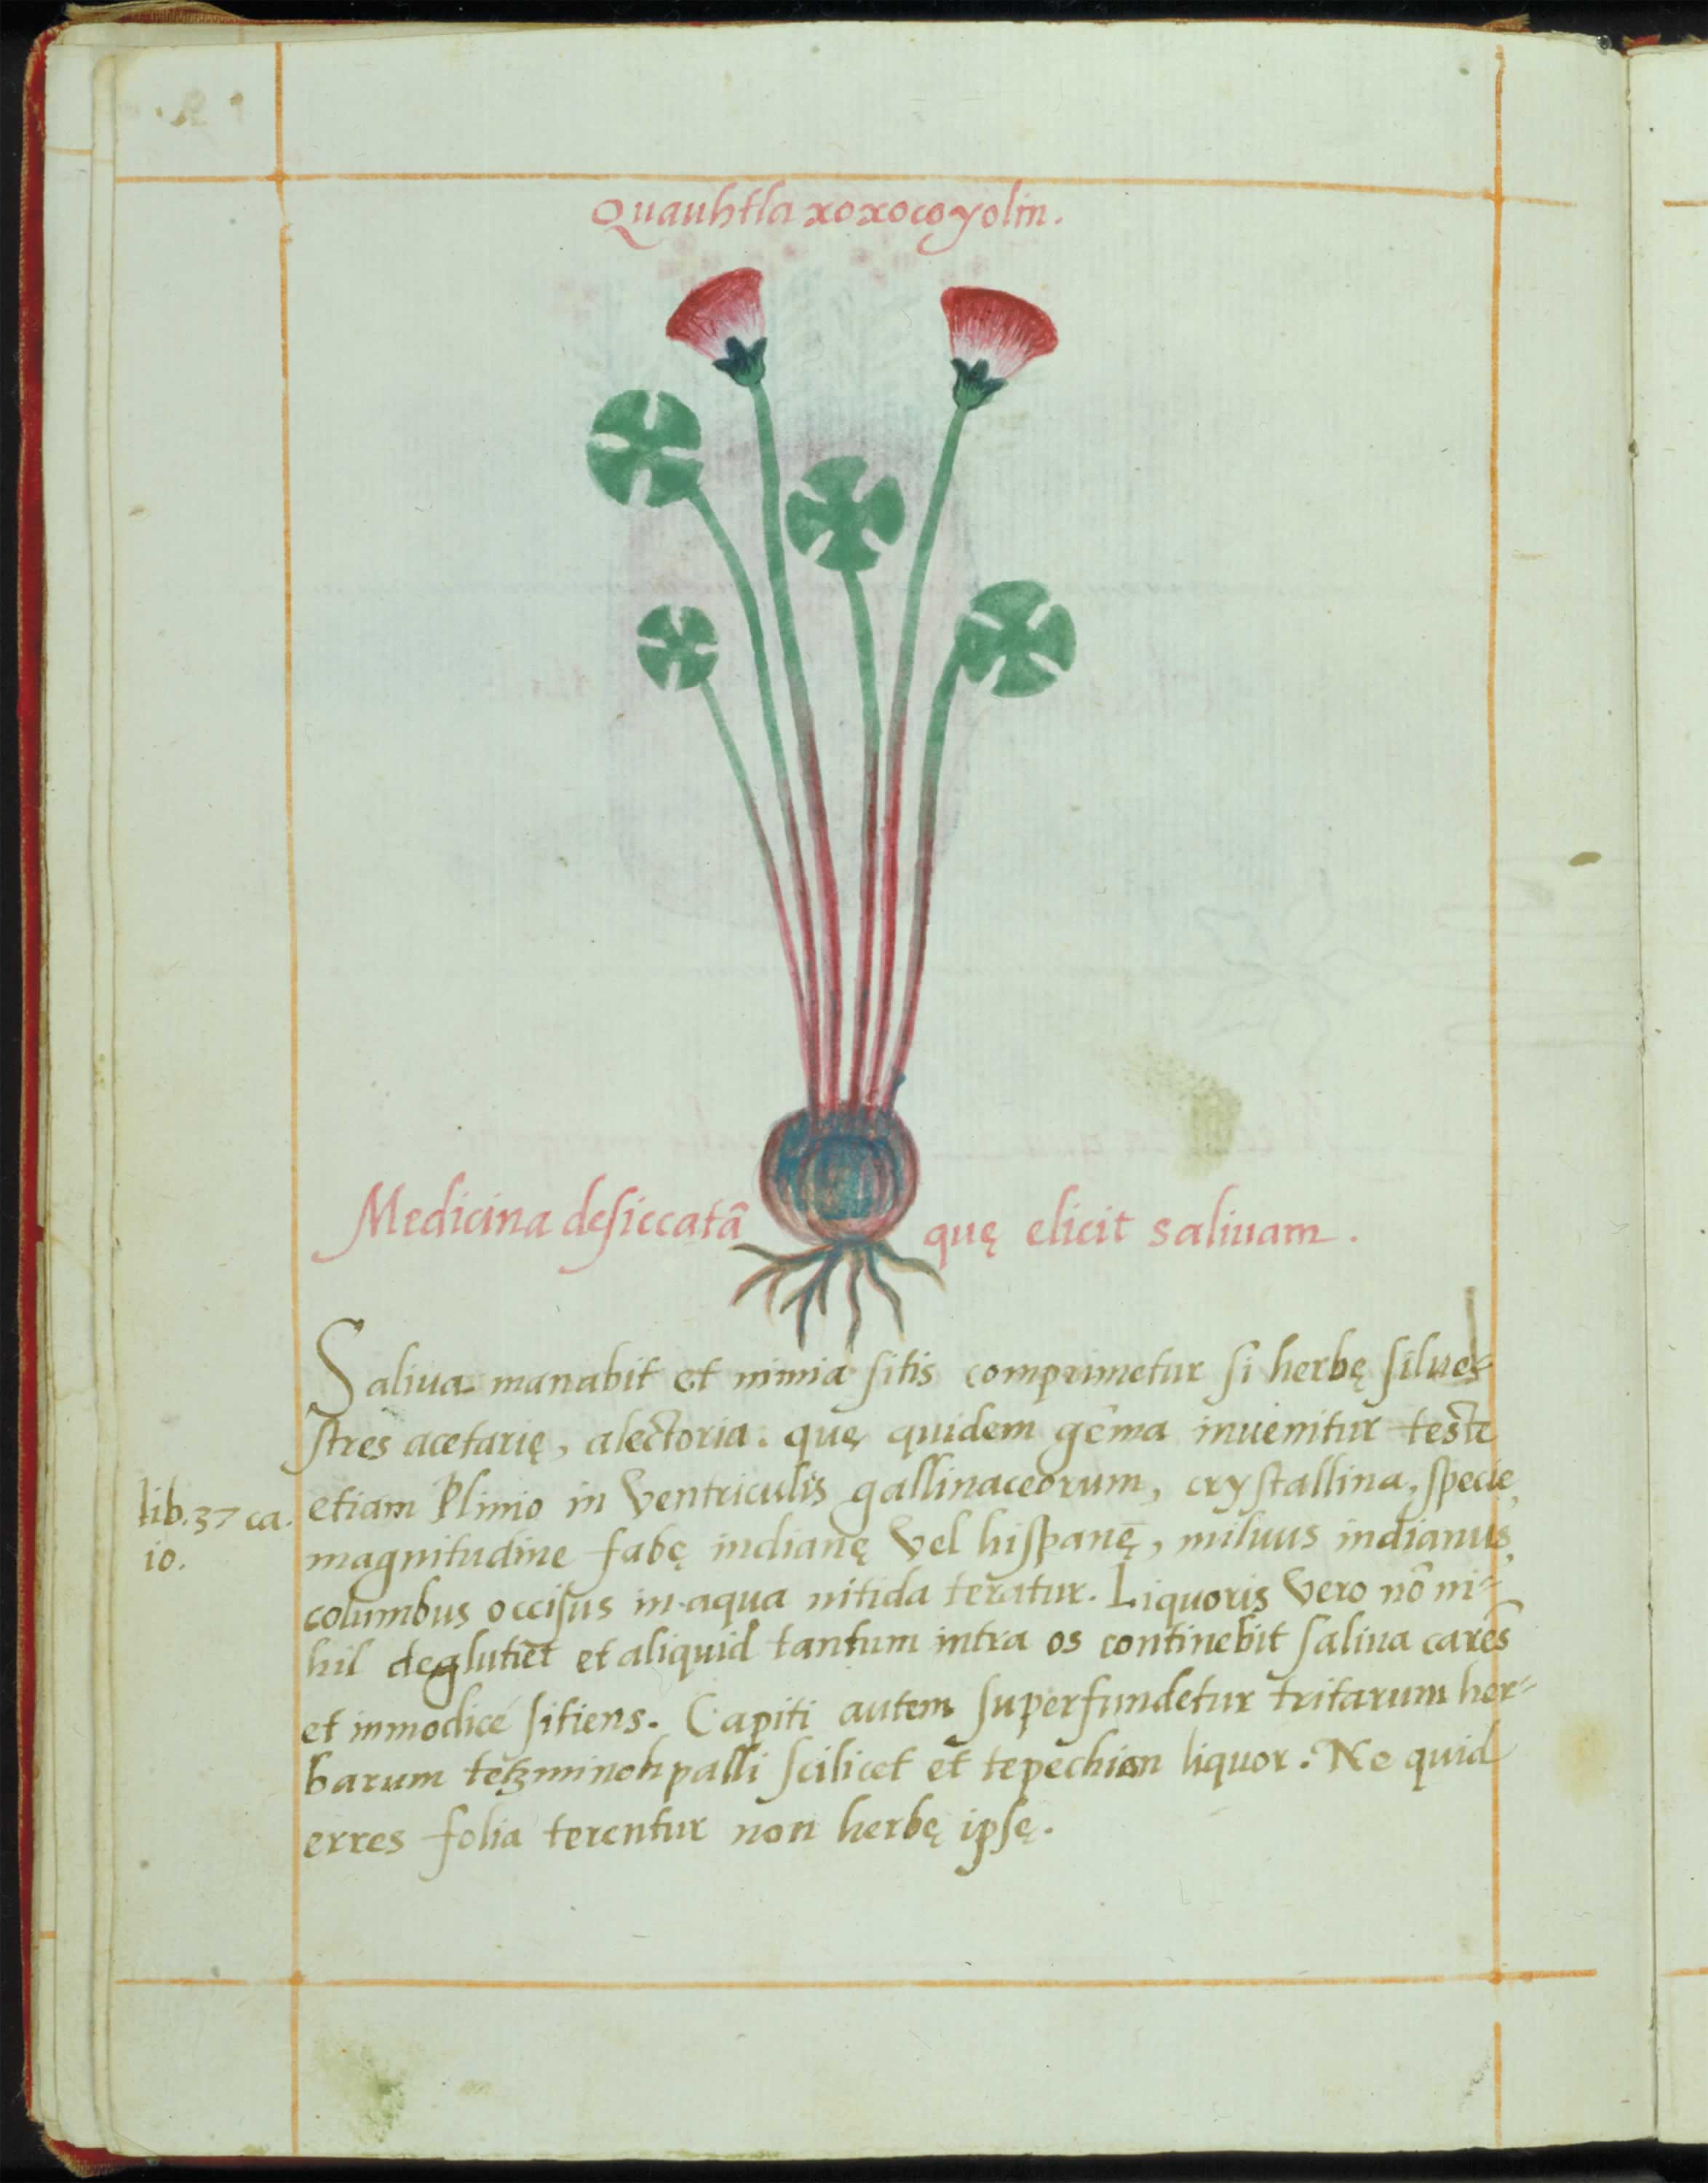 Quauhtla xoxocoyolin.
Medicina deſiccatā quę elicit saliuam.
Saliua manabit et nimia ſitis comprimetur ſi herbę ſilue=
ſtres acetarię, alectoria. quę quidem gēma inuenitur teste
lib. 37 ca.
10.
etiam Plinio in ventriculis gallinaceorum, cryſtallina, ſpecie,
magnitudine fabę indianę vel hiſpanę, miluus indianus,
columbus occiſus in aqua nitida teratur. Liquoris vero nō ni=
hil deglutiet et aliquid tantum intra os continebit ſaliua carēs
et inmodice ſitiens. Capiti autem ſuperfundetur tritarum her=
barum tetzminohpalli ſcilicet et tepechian liquor. Ne quid
erres folia terentur non herbę ipſę.